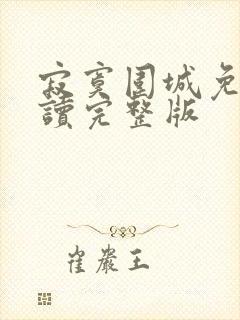 寂寞围城免
讀完整版
崔巖王